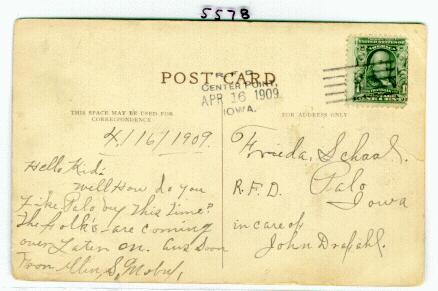 5578
POST CARD
R.F.D.
CENTER POINT,
APR 16 1909
IOWA.
THIS SPACE MAY BE USED FOR
CORRESPONDENCE
FOR ADDRESS ONLY
4/16/1909.
Hello Kid:
Well How do you
Like Palo by This Time?
The folks are coming
over Later on. Ans Soon
From S,
Frieda, Schaal.
R.F.D. Palo
Iowa
in care of
John